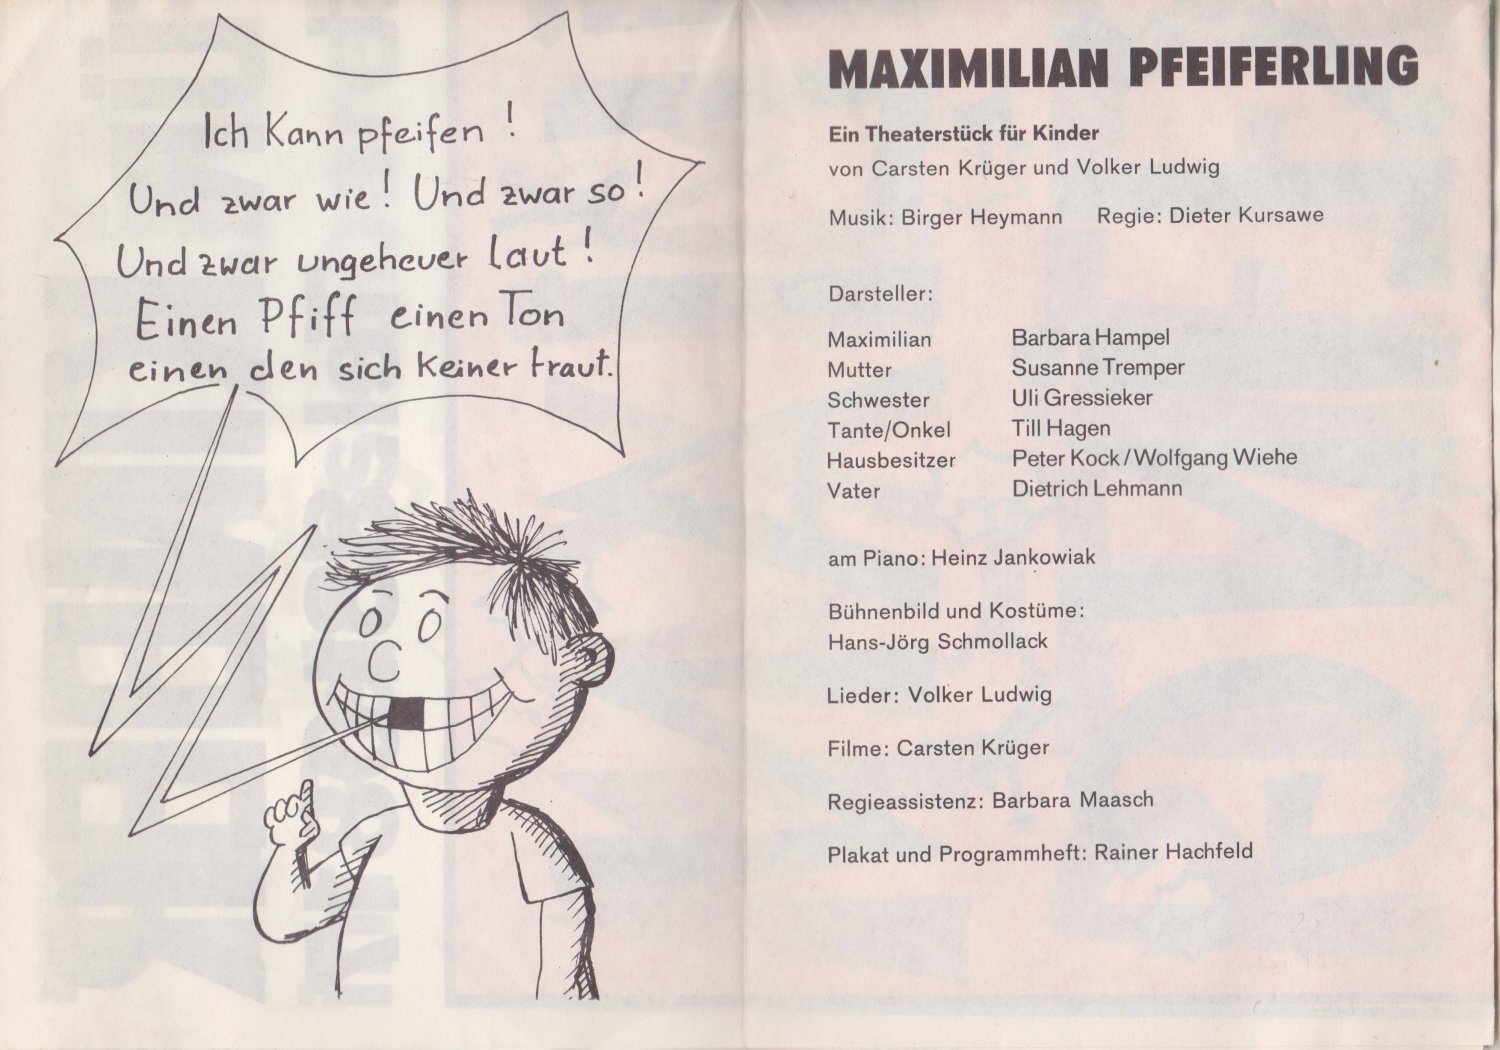 Ich Kann pfeifen !
Und zwar wie ! Und zwar so !
Und zwar ungeheuer laut !
Einen Pfiff einen Ton
einen den sich Keiner traut.
MAXIMILIAN PFEIFERLING
Ein Theaterstück für Kinder
von Carsten Krüger und Volker Ludwig
Musik: Birger Heymann Regie: Dieter Kursawe
Darsteller:
Maximilian Barbara Hampel
Mutter Susanne Tremper
Schwester Uli Gressieker
Tante/Onkel Till Hagen
Hausbesitzer Peter Kock/Wolfgang Wiehe
Vater Dietrich Lehmann
am Piano: Heinz Jankowiak
Bühnenbild und Kostüme:
Hans-Jörg Schmollack
Lieder: Volker Ludwig
Filme: Carsten Krüger
Regieassistenz: Barbara Maasch
Plakat und Programmheft: Rainer Hachfeld